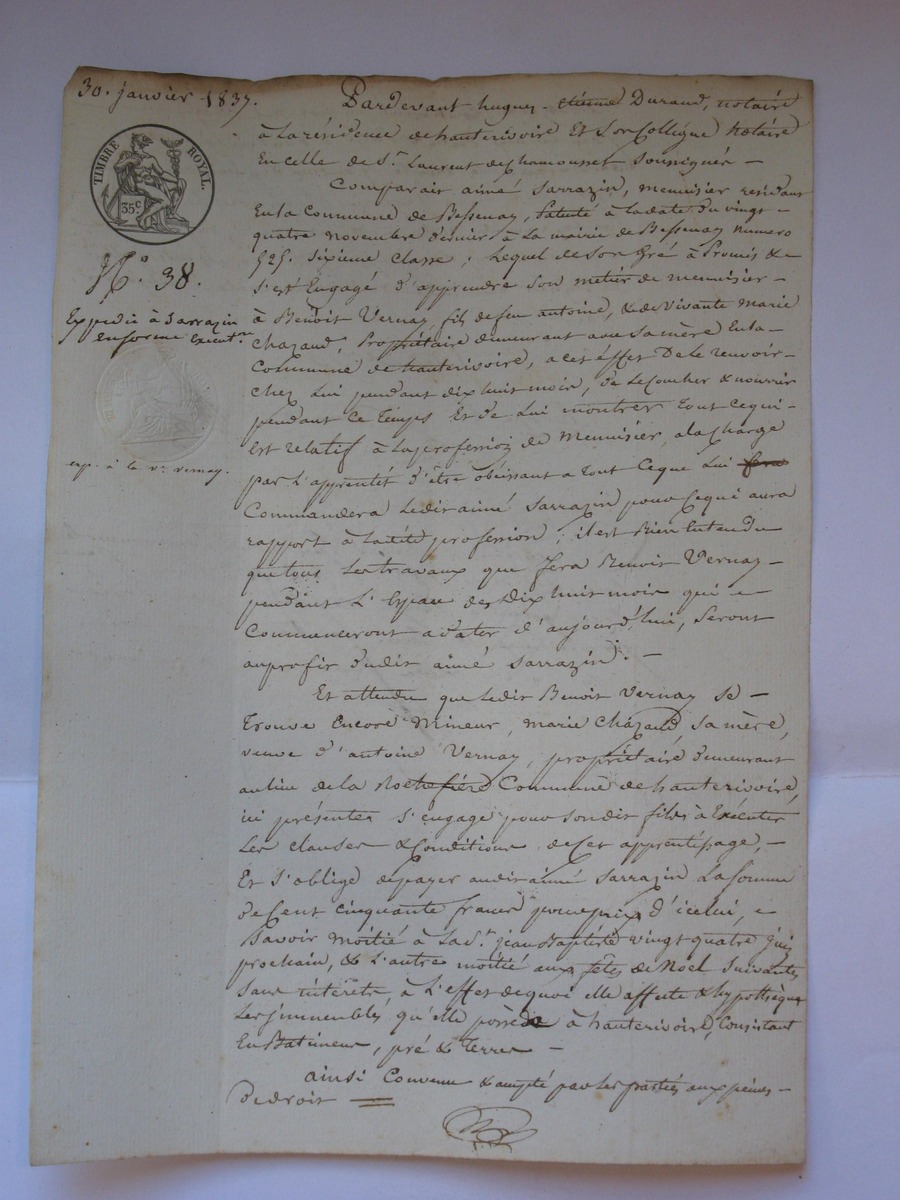 30. janvier 1837.
TIMBRE ROYAL.
35 c
N.° 38.
Expédié à Sarrazin
enforme Execut.re
exp. à la v.e vernay.
Pardevant hugues-étienne Durand, notaire
à la résidence de hauterivoire Et son Collègue Notaire
En celle de S.t Laurent de Chamousset Soussignés —
Comparait aimé Sarrazin, menuisier residant
En la Commune de Bessenay, Patenté à la date du vingt-
quatre novembre dernier à la mairie de Bessenay Numero
525. Sixieme classe ; Lequel de son Gré à Promis &
s'est Engagé d'apprendre son metier de menuisier -
à Benoit Vernay, fils de feu antoine, & de Vivante Marie
Chazaud, Propriétaire demeurant avec sa mère En la -
Commune de hauterivoire, a cet effet De le recevoir -
chez Lui pendant dix huit moir, de le Coucher & nourrir
pendant ce Temps Et de Lui montrer tout Cequi -
est relatif à la profession de Menuisier, a la Charge
par L'apprentit d'être obéissant a tout Ceque Lui
Commandera Ledit aimé Sarrazin pour Cequi aura
rapport à ladite profession ; il est Bien Entendu
que tous Les travaux que fera Benoit Vernay -
pendant L'Espace des Dix huit moir qui -
Commenceront a dater d'aujourd'hui, Seront
au profit dudit aimé Sarrazin. —
Et attendu que Ledit Benoit Vernay se -
Trouve Encore Mineur, Marie Chazaud sa mère,
veuve d'antoine Vernay, propriétaire demeurant
au lieu de la Rochefière Commune de hauterivoire,
ici présente, s'engage pour son dit fils à Exécuter
Les clauses & Conditions de Cet apprentissage, -
Et s'oblige de payer audit aimé Sarrazin La Somme
de Cent Cinquante francs pour prix d'icelui,
Savoir moitié à La S.t jean Baptiste vingt quatre juin
prochain, & L'autre moitié aux fêtes de Noël Suivantes
Sans intérêts, à L'effet de quoi elle affecte & hypothèque
Les jmmeubles qu'elle possède à hauterivoire, Consistant
En Batiments, pré & Terres —
ainsi Convenu & accepté par les parties aux peines -
De droit